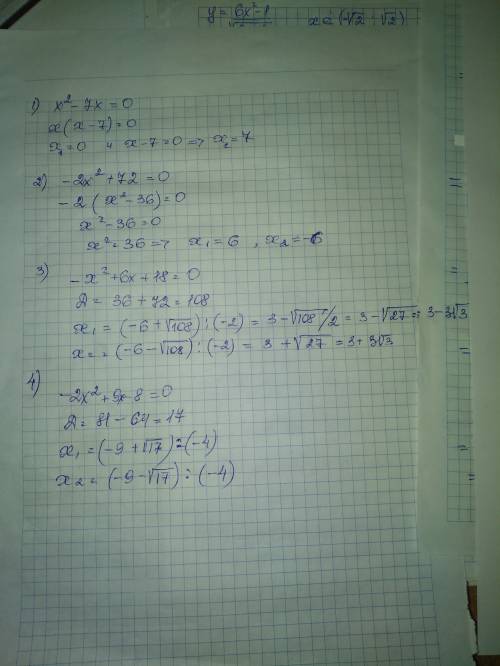 y = 6x²-1 x ∈ (-√2 √2)
1) x² - 7x = 0
x(x - 7) = 0
x₁ = 0 и x - 7 = 0 => x₂ = 7
2) -2x² + 72 = 0
-2(x² - 36) = 0
x² - 36 = 0
x² = 36 => x₁ = 6, x₂ = -6
3) -x² + 6x + 18 = 0
Д = 36 + 72 = 108
x₁ = (-6 + √108) : (-2) = 3 - √108/2 = 3 - √27 = 3 - 3√3
x = (-6 - √108) : (-2) = 3 + √27 = 3 + 3√3
4) -2x² + 9x - 8 = 0
Д = 81 - 64 = 17
x₁ = (-9 + √17) : (-4)
x₂ = (-9 - √17) : (-4)